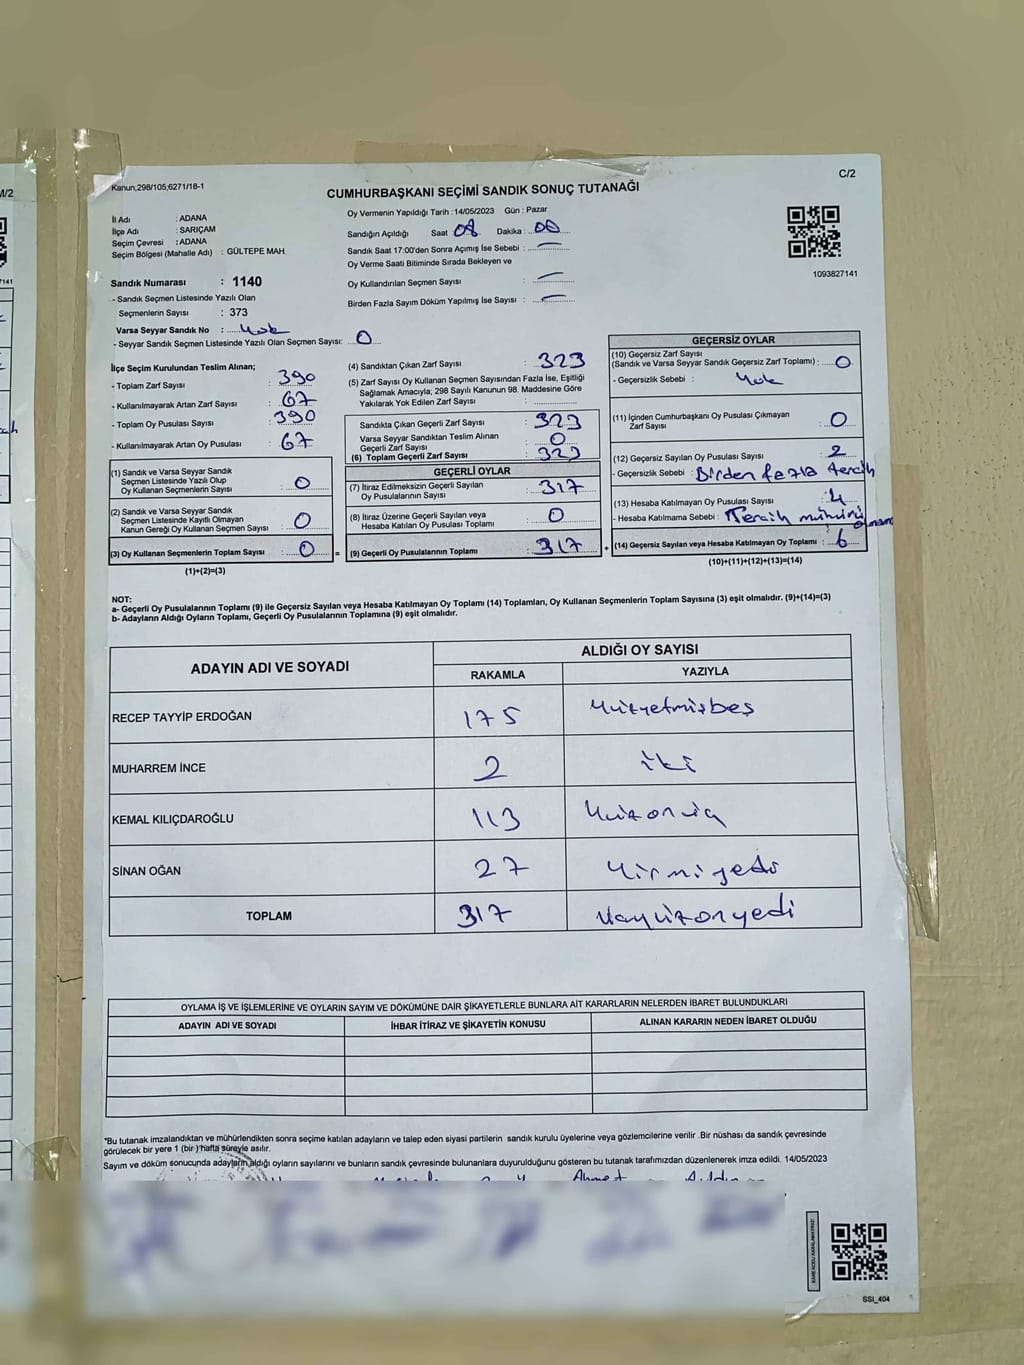 M/2
Kanun,298/105;6271/18-1
C/2
CUMHURBAŞKANI SEÇİMİ SANDIK SONUÇ TUTANAĞI
İl Adı : ADANA
İlçe Adı : SARIÇAM
Seçim Çevresi : ADANA
Seçim Bölgesi (Mahalle Adı) : GÜLTEPE MAH.
Oy Vermenin Yapıldığı Tarih :14/05/2023 Gün : Pazar
Sandığın Açıldığı Saat 08 Dakika : 00
Sandık Saat 17:00'den Sonra Açımış İse Sebebi : —
Oy Verme Saati Bitiminde Sırada Bekleyen ve
Oy Kullandırılan Seçmen Sayısı : —
Birden Fazla Sayım Döküm Yapılmış İse Sayısı : —
1093827141
Sandık Numarası : 1140
- Sandık Seçmen Listesinde Yazılı Olan
Seçmenlerin Sayısı : 373
Varsa Seyyar Sandık No : Yok
- Seyyar Sandık Seçmen Listesinde Yazılı Olan Seçmen Sayısı: 0
İlçe Seçim Kurulundan Teslim Alınan;
- Toplam Zarf Sayısı : 390
- Kullanılmayarak Artan Zarf Sayısı : 67
- Toplam Oy Pusulası Sayısı : 390
- Kullanılmayarak Artan Oy Pusulası : 67
(1) Sandık ve Varsa Seyyar Sandık
Seçmen Listesinde Yazılı Olup
Oy Kullanan Seçmenlerin Sayısı : 0
(2) Sandık ve Varsa Seyyar Sandık
Seçmen Listesinde Kayıtlı Olmayan
Kanun Gereği Oy Kullanan Seçmen Sayısı : 0
(3) Oy Kullanan Seçmenlerin Toplam Sayısı : 0 =
(1)+(2)=(3)
(4) Sandıktan Çıkan Zarf Sayısı : 323
(5) Zarf Sayısı Oy Kullanan Seçmen Sayısından Fazla İse, Eşitliği
Sağlamak Amacıyla; 298 Sayılı Kanunun 98. Maddesine Göre
Yakılarak Yok Edilen Zarf Sayısı :
Sandıkta Çıkan Geçerli Zarf Sayısı : 323
Varsa Seyyar Sandıktan Teslim Alınan
Geçerli Zarf Sayısı : 0
(6) Toplam Geçerli Zarf Sayısı : 323
GEÇERLİ OYLAR
(7) İtiraz Edilmeksizin Geçerli Sayılan
Oy Pusulalarının Sayısı : 317
(8) İtiraz Üzerine Geçerli Sayılan veya
Hesaba Katılan Oy Pusulası Toplamı : 0
(9) Geçerli Oy Pusulalarının Toplamı : 317 +
GEÇERSİZ OYLAR
(10) Geçersiz Zarf Sayısı
(Sandık ve Varsa Seyyar Sandık Geçersiz Zarf Toplamı) : 0
- Geçersizlik Sebebi : Yok
(11) İçinden Cumhurbaşkanı Oy Pusulası Çıkmayan
Zarf Sayısı : 0
(12) Geçersiz Sayılan Oy Pusulası Sayısı : 2
- Geçersizlik Sebebi : Birden fazla tercih
(13) Hesaba Katılmayan Oy Pusulası Sayısı : 4
- Hesaba Katılmama Sebebi : Tercih mührü
(14) Geçersiz Sayılan veya Hesaba Katılmayan Oy Toplamı : 6
(10)+(11)+(12)+(13)=(14)
NOT:
a- Geçerli Oy Pusulalarının Toplamı (9) ile Geçersiz Sayılan veya Hesaba Katılmayan Oy Toplamı (14) Toplamları, Oy Kullanan Seçmenlerin Toplam Sayısına (3) eşit olmalıdır. (9)+(14)=(3)
b- Adayların Aldığı Oyların Toplamı, Geçerli Oy Pusulalarının Toplamına (9) eşit olmalıdır.
ADAYIN ADI VE SOYADI
ALDIĞI OY SAYISI
RAKAMLA YAZIYLA
RECEP TAYYİP ERDOĞAN 175 Yüzyetmişbeş
MUHARREM İNCE 2 iki
KEMAL KILIÇDAROĞLU 113 Yüzonüç
SİNAN OĞAN 27 Yirmiyedi
TOPLAM 317 üçyüzonyedi
OYLAMA İŞ VE İŞLEMLERİNE VE OYLARIN SAYIM VE DÖKÜMÜNE DAİR ŞİKAYETLERLE BUNLARA AİT KARARLARIN NELERDEN İBARET BULUNDUKLARI
ADAYIN ADI VE SOYADI İHBAR İTİRAZ VE ŞİKAYETİN KONUSU ALINAN KARARIN NEDEN İBARET OLDUĞU
*Bu tutanak imzalandıktan ve mühürlendikten sonra seçime katılan adayların ve talep eden siyasi partilerin sandık kurulu üyelerine veya gözlemcilerine verilir .Bir nüshası da sandık çevresinde
görülecek bir yere 1 (bir )'hafta süreyle asılır.
Sayım ve döküm sonucunda adayların aldığı oyların sayılarını ve bunların sandık çevresinde bulunanlara duyurulduğunu gösteren bu tutanak tarafımızdan düzenlenerek imza edildi. 14/05/2023
Ahmet
SSI_404